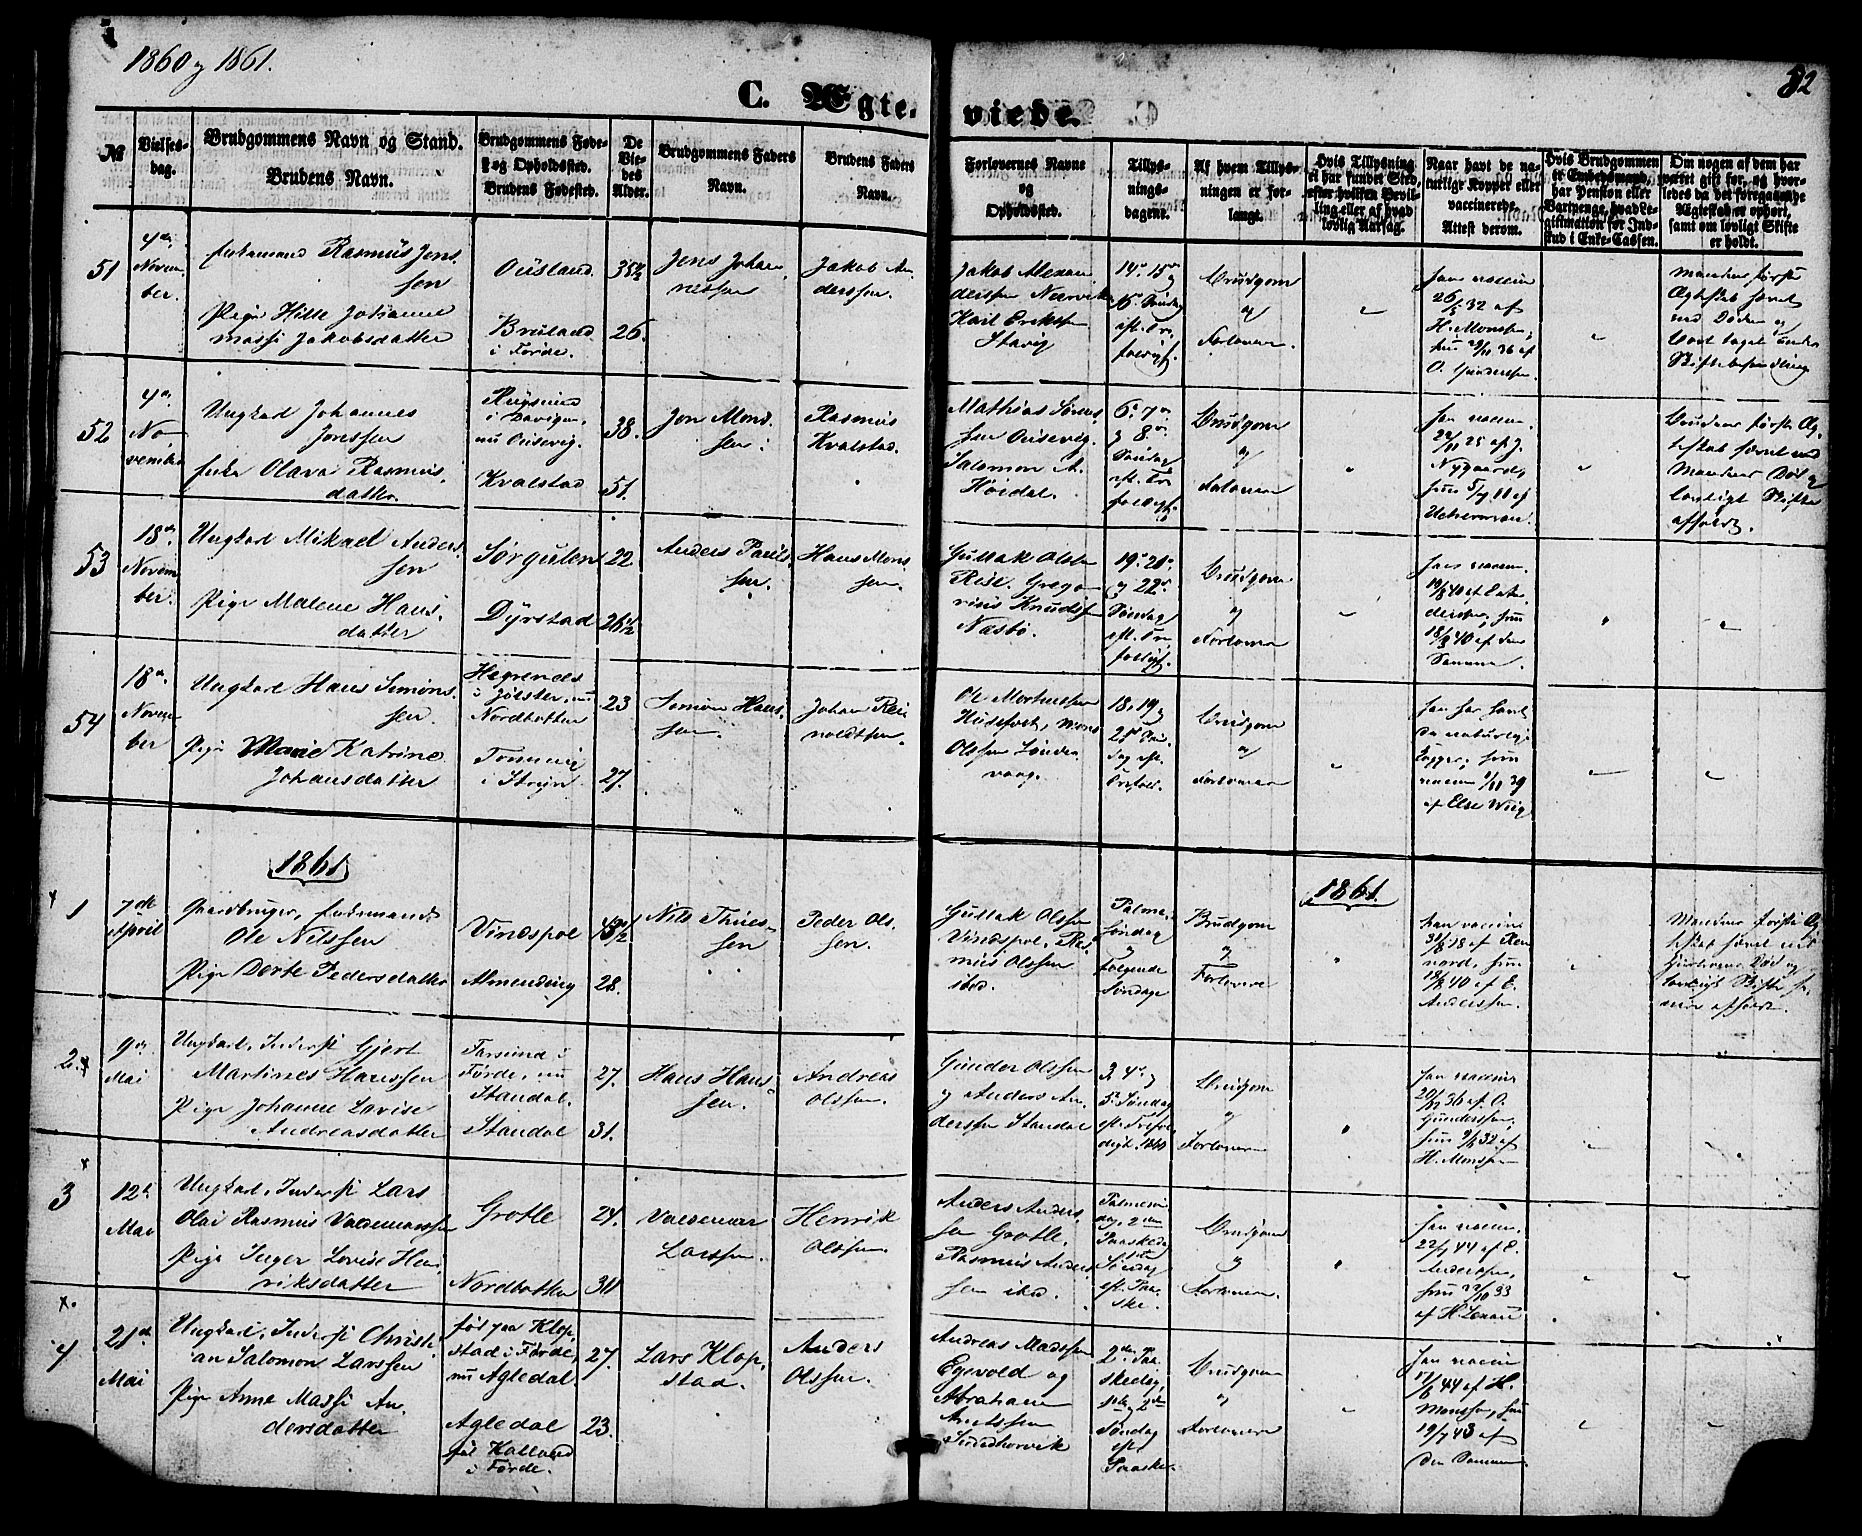 1860 og 1861.
82
C. Ægteviede.
№
Vielsesdag.
Brudgommens Navn og Stand.
Brudens Navn.
Brudgommens Føde- og Opholdssted.
Brudens Fødested.
De Viedes Alder.
Brudgommens Faders Navn.
Brudens Faders Navn.
Forlovernes Navne og Opholdssted.
Tillysningsdagene.
Af hvem Tillysningen er forlangt.
Hvis Tillysning ei har fundet Sted, efter hvilken Bevilling eller af hvad lovlig Aarsag.
Naar havt de naturlige Kopper eller vaccinerede. Attest derom.
Hvis Brudgommen er Embedsmand, har Pension eller Vartpenge, hvad Legitimation for Indskud i Enke-Cassen.
Om nogen af dem har været gift før, og hvorledes da det foregaaende Ægteskab er ophørt, samt om lovligt Skifte er holdt.
51
4de November.
Enkemand Rasmus Jenssen
Pige Hille Johanne Massi Jakobsdatter
Ousland
Breiland i Førde.
35½
26.
Jens Johannessen
Jakob Anderssen.
Jakob Alexanderssen Nærvik
Karl Erikssen Stavø
14de 15de og 16de Søndag eft. Trefoldigh.
Brudgom og Forlovere.
han vaccin 26/5 32 af H. Monssen, hun 29/11 36 af O. Gunderssen.
Mandens første Ægteskab hævet ved Døden og lovl. taget under Skiftebehandling
52
4de November
Ungkarl Johannes Jonssen
Enke Olava Rasmusdatter
i Daviken, nu Ousevig.
Kvalstad
38.
51.
Jon Monssen.
Rasmus Kvalstad.
Mathias Sørenssen Ousevig.
Salomon A. Høidal.
6te 7de og 8de Søndag eft. Trefoldigh.
Brudgom og Forlovere
han vaccin. 22/11 25 af J. Nygaard,
Brudens første Ægteskab hævet ved Mandens Død og lovligt Skifte afholdt.
53
18de November.
Ungkarl Mikael Anderssen
Pige Malene Hansdatter
Sørgulen
Dyrstad
22
26½
Anders Paulssen.
Hans Monssen.
Gullak Olssen Riise Gregorius Knudssen Næsbø.
19de 20de og 22de Søndag eft. Trefoldigh.
Brudgom og Forlovere
hun 18/8 40 af den Samme.
54
18de November
Ungkarl Hans Simonssen.
Pige Marie Katrine Johansdatter
Hegrenæs i Jølster, nu Nordbotten
i Stryn
23
27.
Simon Hanssen.
Johan Reinoldtssen.
Ole Mortenssen Husefest, Mons Olssen Søndervaag.
18, 19 og 21de Søndag eft. Trefold.
Brudgom og Forlovere
han har havt de naturlige Kopper, hun vaccin 1/11 39 af Else Wiig
1861
1861.
1
7de April
Gaardbruger, Enkemand Ole Nilssen
Pige Dorte Pedersdatter
Vindspol
Almending
28.
Nils Thuessen
Peder Olssen.
Gullak Olssen Vindspol, Rasmus Olssen ibid.
Palmesøndag og følgende Søndage
Brudgom og Forlovere
han vaccin 31/8 18 af Rennord, hun 18/8 40 af E. Anderssen.
Mandens første Ægteskab hævet ved Hustruens Død og lovligt Skifte
2.
9de Mai
Ungkarl, Inderst Gjert Martinus Hanssen
Pige Johanne Lovise Andreasdatter
Farsund i Førde, nu Standal.
Standal
27.
31.
Hans Hanssen.
Andreas Olssen.
Gunder Olssen og Anders Anderssen Standal
3, 4de og 5te Søndag eft. Trefoldigh. 1860
Brudgom og Forlovere
han vaccin 20/12 36 af O. Gunderssen, hun 9/8 32 af H. Monssen
3
12te Mai
Ungkarl, Inderst Lars Olai Rasmus Valdemarssen
Pige Inger Lovise Henriksdatter
Grotle
Nordbotten
24.
30
Valdemar Larssen.
Henrik Olssen.
Anders Anderssen Grotle, Rasmus Anderssen ibd.
Palmesøndag, 2den Paaskedag 1ste Søndag eft. Paaske.
Brudgom og Forlovere.
han vaccin. 22/7 44 af E. Anderssen,
4
21de Mai
Ungkarl, Inderst Christian Salomon Larssen
Pige Anne Massi Andersdatter
født paa Klopstad i Førde, nu Agledal.
Agledal
i Førde.
27.
23.
Lars Klopstad.
Anders Olssen.
Andreas Madssen Egevold og Abraham
2den Paaskedag, 1ste og 2den Søndag eft. Paaske.
Brudgom og Forlovere
han vaccin 11/6 44 af H. Monssen, hun 19/7 43 af den Samme